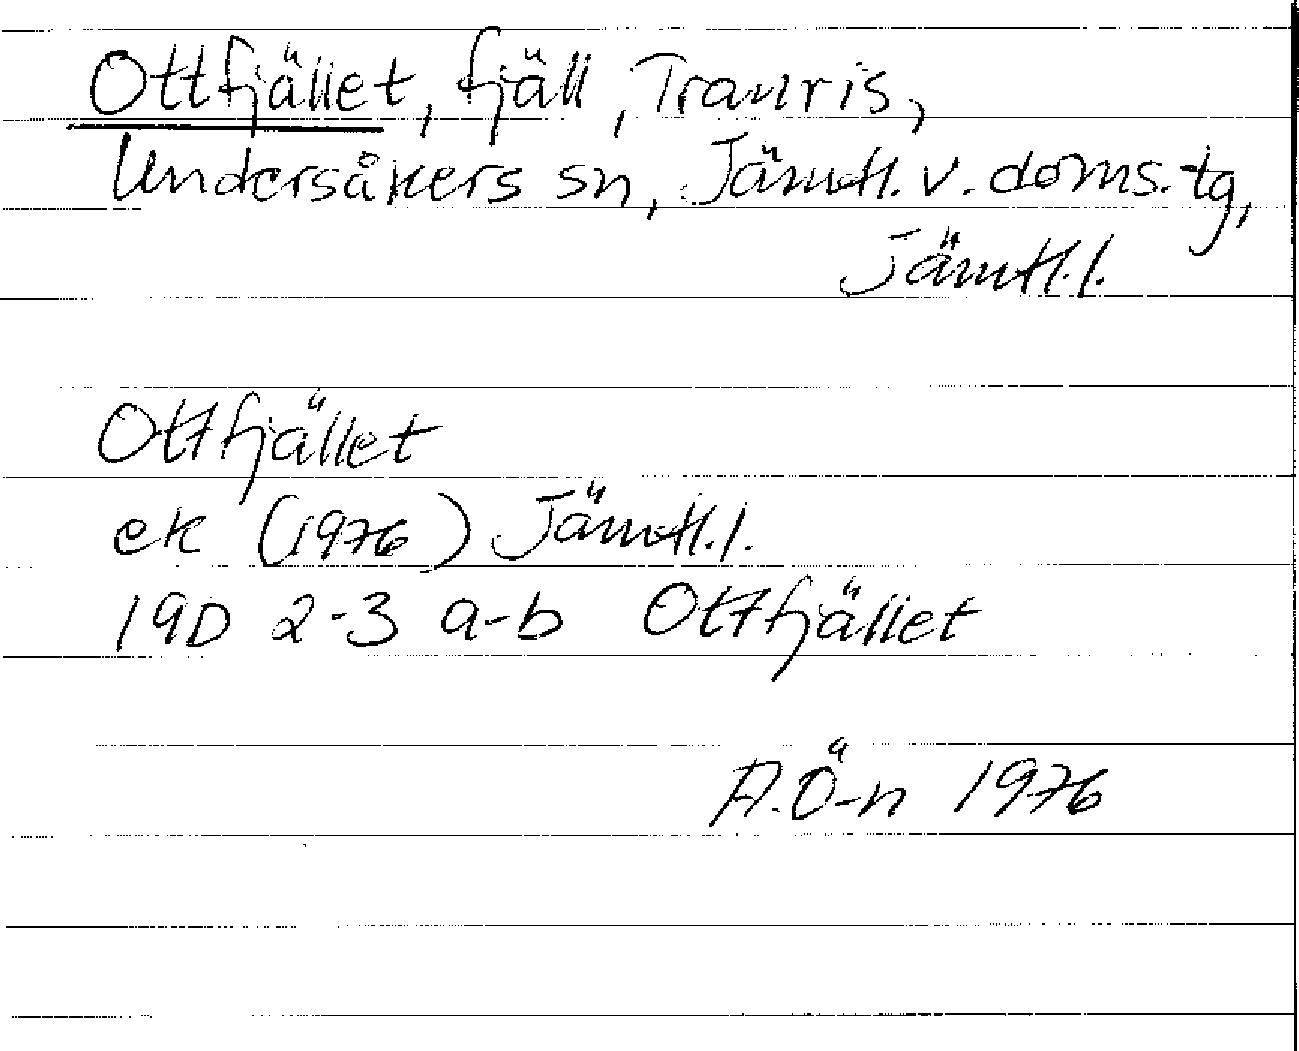 Ottfjället, fjäll, Tranris,
Undersåkers sn, Jämtl. v. doms. tg,
Jämtl. l.
Ottfjället
ek (1976) Jämtl. l.
19D 2-3 a-b Ottfjället
A. Ö-n 1976